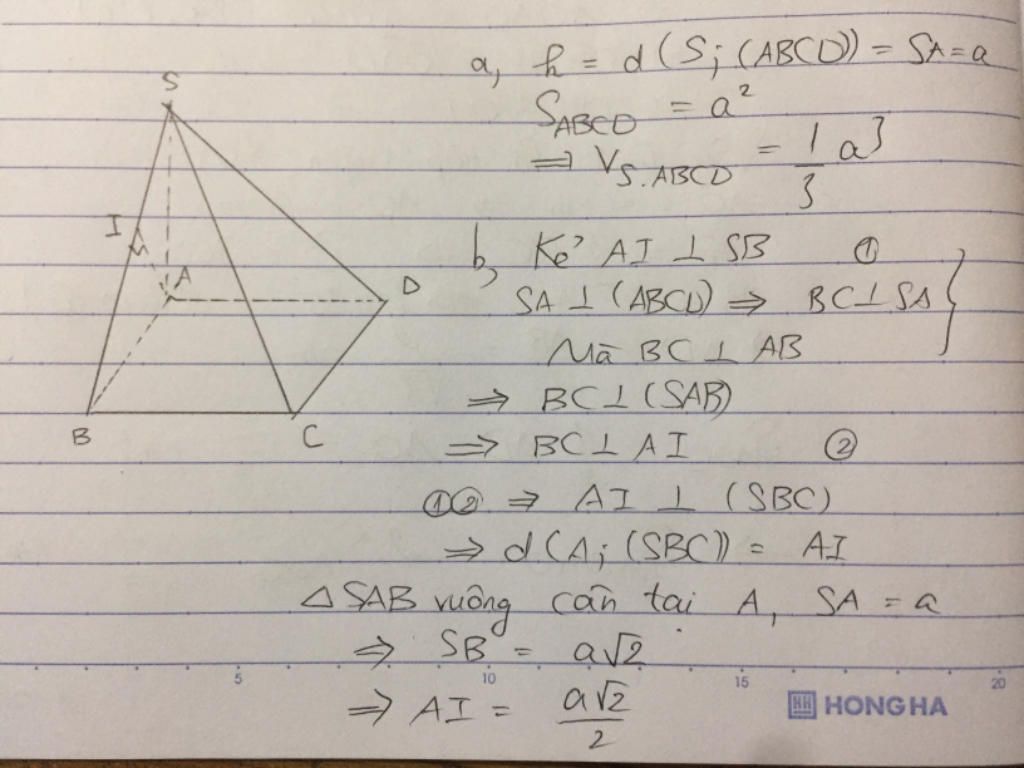 S
I
A
D
B
C
a, h = d(S; (ABCD)) = SA = a
S_ABCD = a²
⇒ V_S.ABCD = 1/3 a³
b, Kẻ AI ⊥ SB ①
SA ⊥ (ABCD) ⇒ BC ⊥ SA }
Mà BC ⊥ AB
⇒ BC ⊥ (SAB)
⇒ BC ⊥ AI ②
①② ⇒ AI ⊥ (SBC)
⇒ d(A; (SBC)) = AI
△ SAB vuông cân tại A, SA = a
⇒ SB = a√2
⇒ AI = a√2/2
5 10 15 20
HH HONG HA